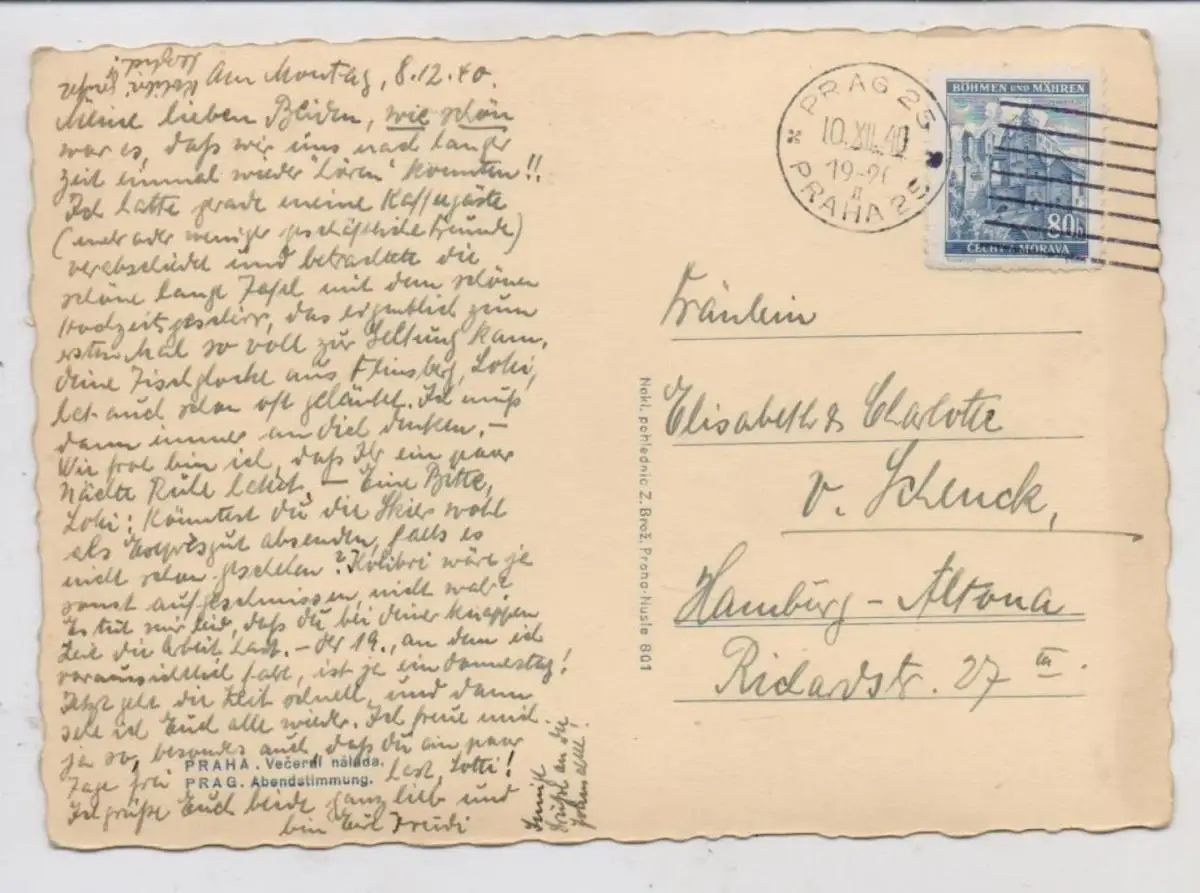 Am Montag, 8.12.40.
Meine lieben Beiden, wie schön
war es, daß wir uns nach langer
Zeit einmal wieder "hören" konnten!!
Ich hatte gerade meine Kaffeegäste
(mehr oder weniger geschäftliche Freunde)
verabschiedet und betrachtete die
schöne lange Tafel mit dem schönen
Hochzeitsgeschirr, das eigentlich zum
ersten Mal so voll zur Geltung kam.
Deine Tischglocke aus Flinsberg, Lotti,
hat auch schon oft geläutet. Ich muß
dann immer an dich denken. –
Wie froh bin ich, daß Ihr ein paar
Nächte Ruhe hattet. – Eine Bitte,
Lotti: Könntest du die Skier wohl
als Expreßgut absenden, falls es
nicht schon geschehen? Kolibri wäre ja
sonst aufgeschmissen, nicht wahr?
Es tut mir leid, daß du bei deiner knappen
Zeit die Arbeit hast. – Der 19., an dem ich
voraussichtlich fahre, ist ja ein Donnerstag!
Jetzt geht die Zeit schnell, und dann
sehe ich Euch alle wieder. Ich freue mich
ja so, besonders auch, daß du ein paar
Tage frei hast, Lotti!
Ich grüße Euch beide ganz lieb und
bin Eure Freudi
Innige
Grüße an die
PRAHA. Večerní nálada.
PRAG. Abendstimmung.
Nakl. pohlednic Z. Brož, Praha-Nusle 801
PRAG 25
10.XII.40
19-20
II
PRAHA 25
BÖHMEN UND MÄHREN
80h
ČECHY A MORAVA
Fräulein
Elisabeth & Charlotte
v. Schenck,
Hamburg - Altona
Richardstr. 27 III